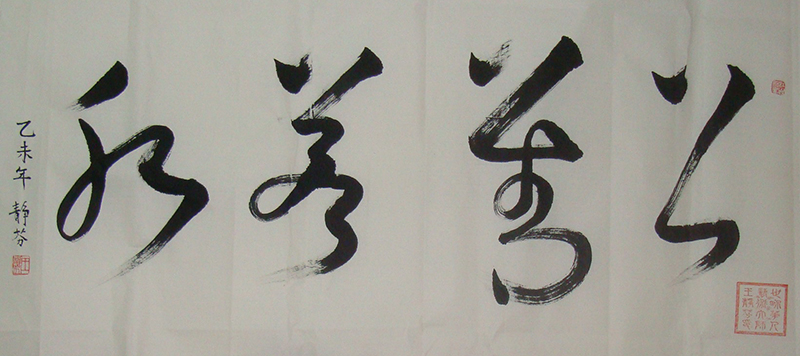 公善若水
乙未年 静芬